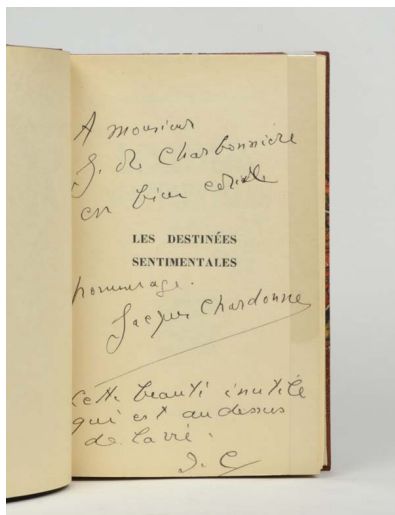 A Monsieur
G. de Charbonnière
en bien cordial
LES DESTINÉES
SENTIMENTALES
hommage.
Jacques Chardonne
Cette beauté inutile
qui est au dessus
de la vie.
J. C